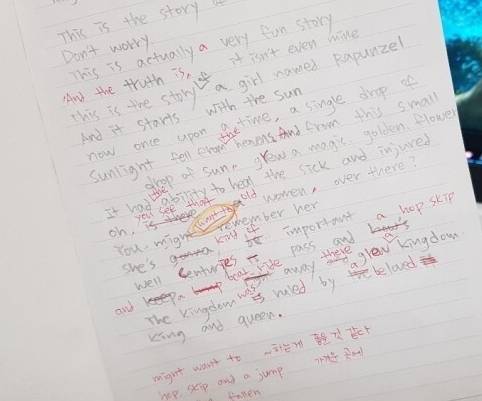 This is the story of
Don't worry
This is actually a very fun story
And the truth is, it isn't even mine
this is the story of a girl named Rapunzel
And it starts with the sun
now once upon a time, a single drop of
sunlight fell from the heavens. And from this small
drop of sun, grew a magic golden flower
It had the ability to heal the sick and injured
oh, you see that is there old women, over there?
You might want to remember her
She's gonna kind of important
well centuries pass and a hop skip
and a boat ride away there grew a kingdom
The kingdom was ruled by a beloved
king and queen.
might want to ~하는게 좋을 것 같다
hop, skip and a jump 가까운 곳에
fallen